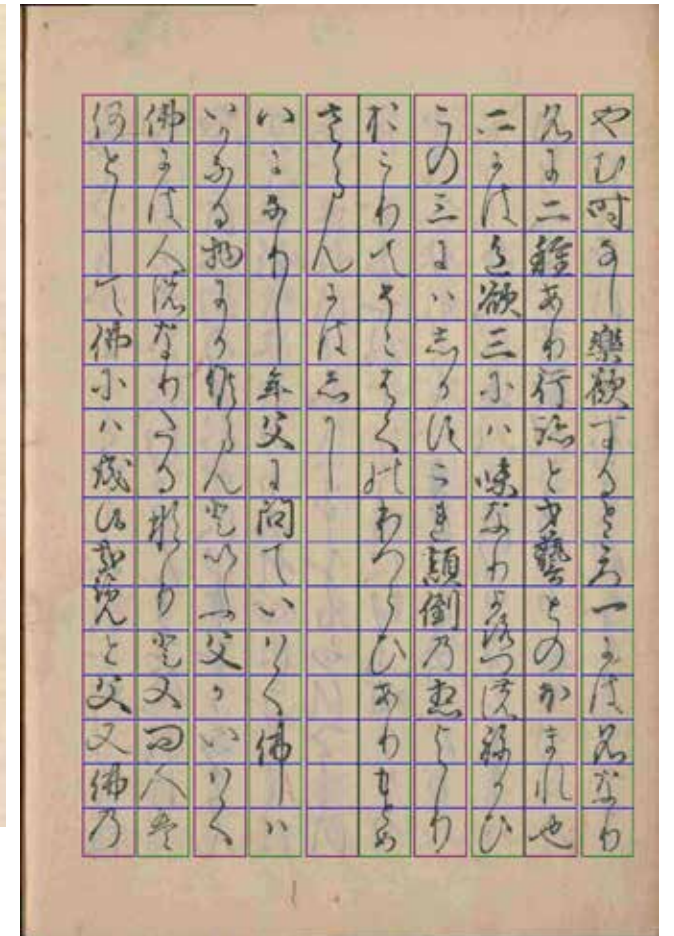 やむ時なし樂欲するところ一には名なり
名に二種あり行跡と才藝とのほまれ也
二には色欲三には味なりよろつの願ひ
この三にはしかすこれ顛倒の想より
おこりてそこはくのわつらひありもとめ
さらんにはしかし
八になりし年父に問ていはく佛ハ
いかなる物にか候らんといふ父かいはく
佛には人のなりたる形りと又問人は
何として佛にハ成候やらんと父又佛の